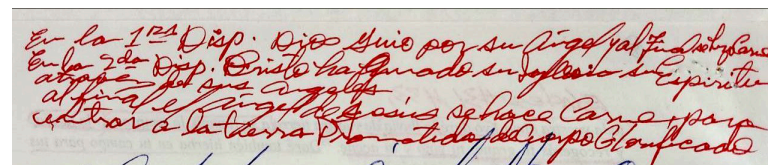 En la 1ra Disp. Dios Guio por su Angel y al Final se hizo Carne
En la 2da Disp. Cristo ha Guiado su Iglesia su Espiritu
atraves de sus angeles
al final el Angel de Jesus se hace Carne para
entrar a la tierra Prometida del cuerpo Glorificado